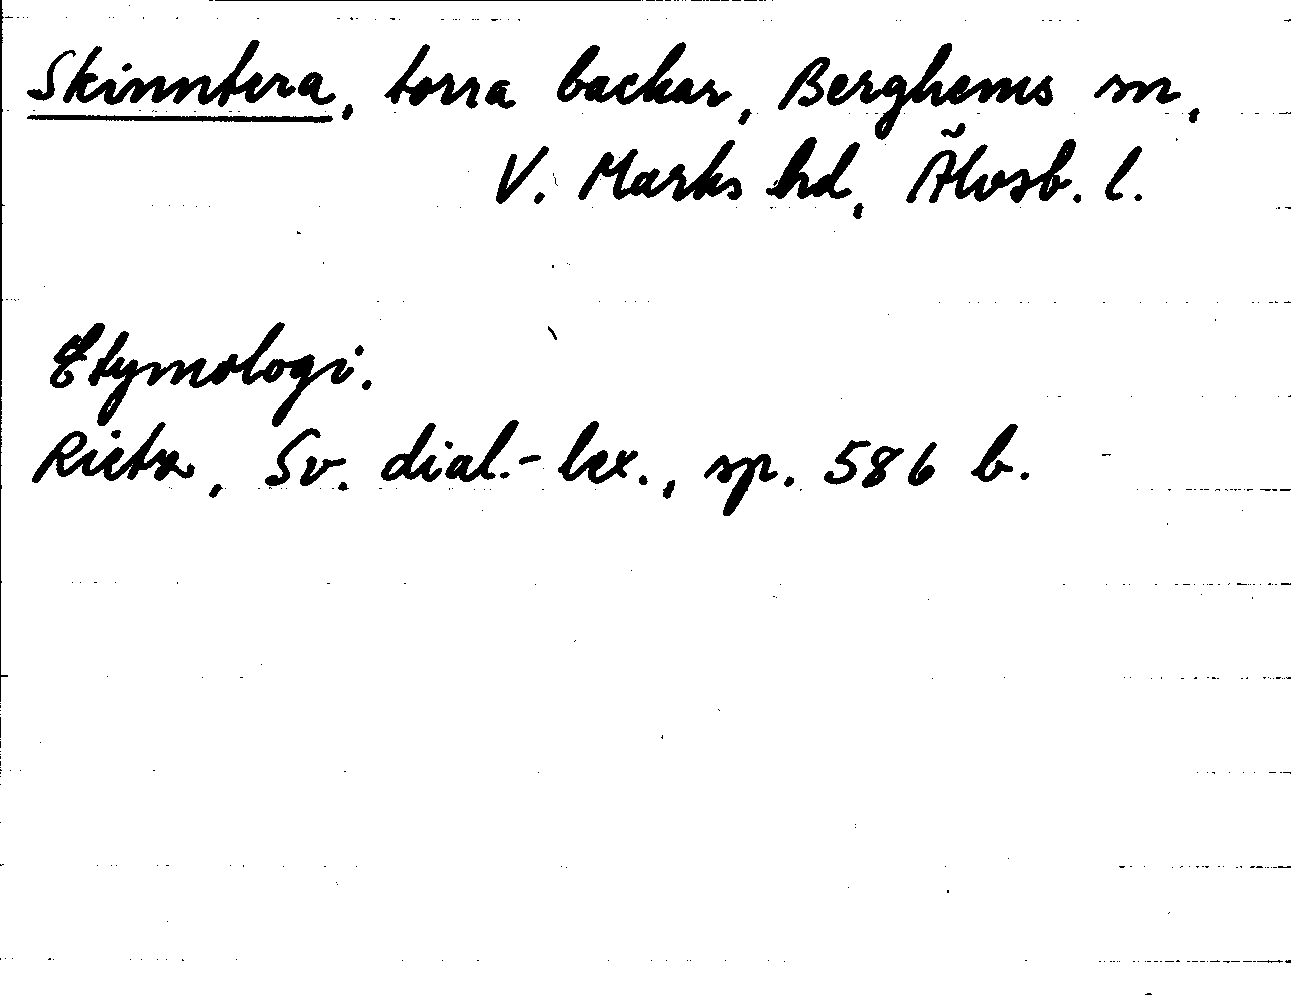 Skinntera, torra backar, Berghems sn,
V. Marks hd, Älvsb. l.
Etymologi.
Rietz, Sv. dial.-lex., sp. 586 b.